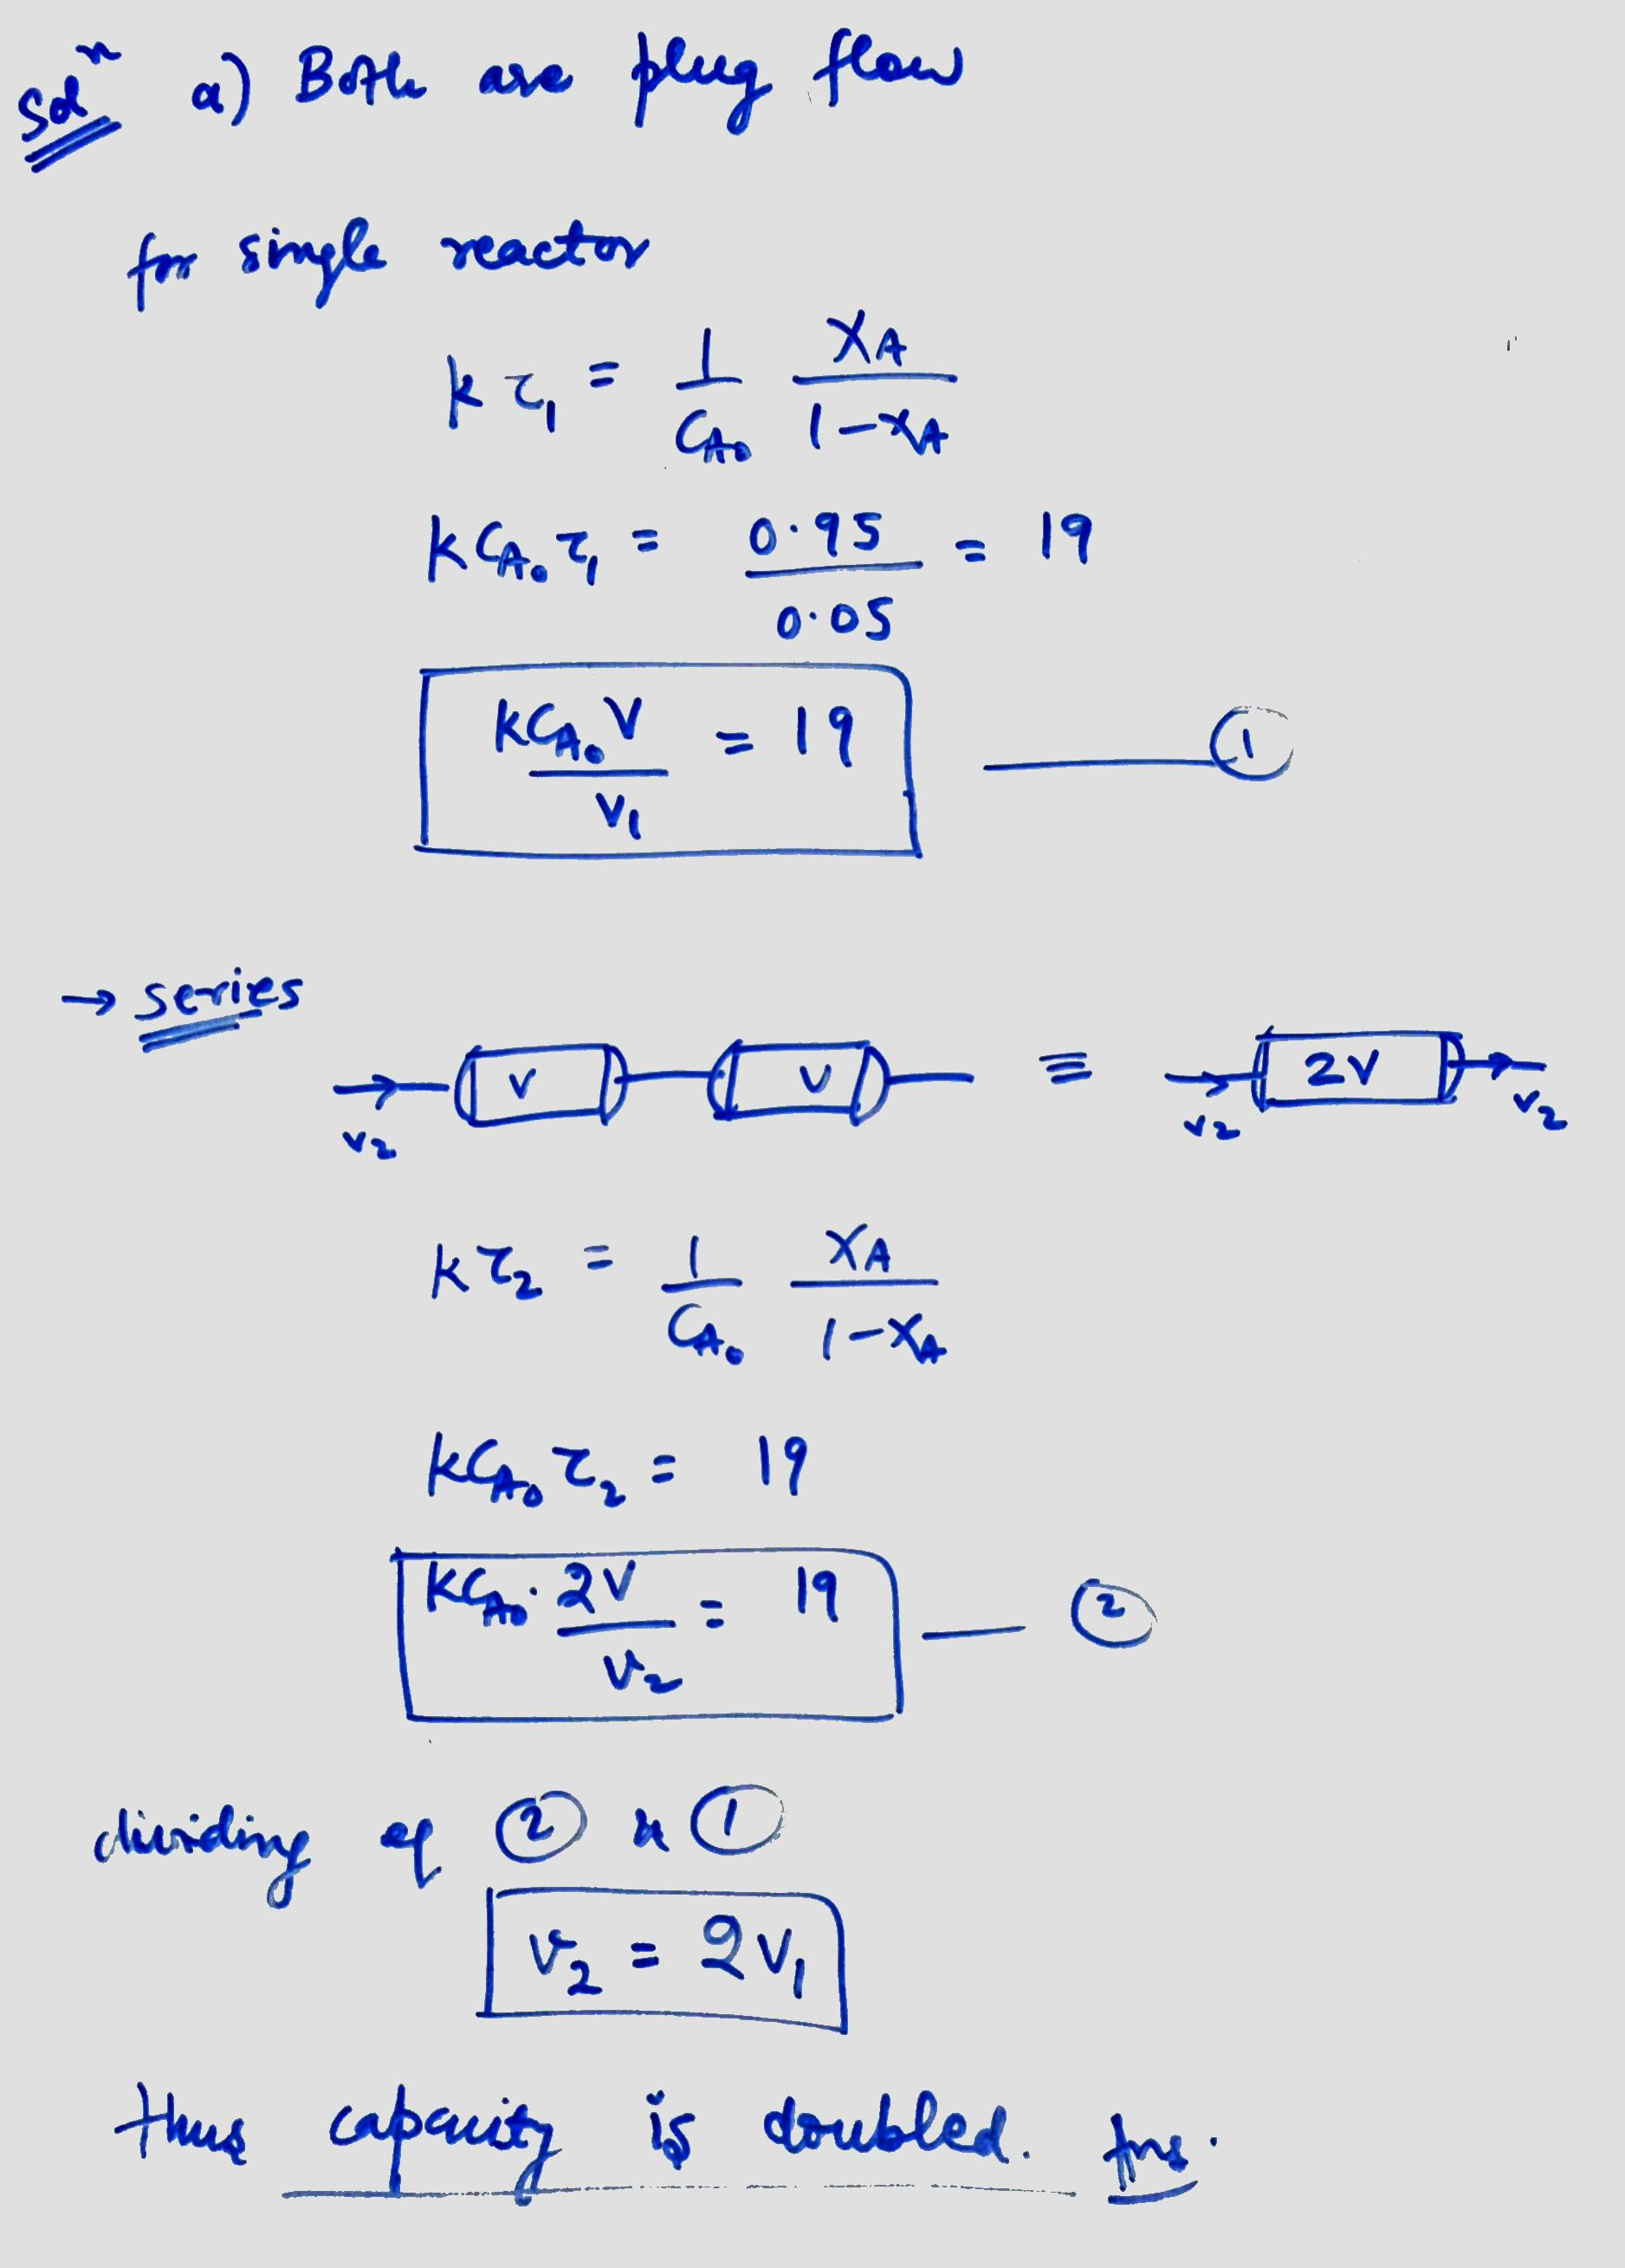 Solⁿ a) Both are plug flow
for single reactor
kτ₁ = 1/C_A₀ X_A/1-X_A
kC_A₀τ₁ = 0.95/0.05 = 19
kC_A₀V/v₁ = 19 — ①
→ series
V V ≡ 2V
v₂ v₂ v₂
kτ₂ = 1/C_A₀ X_A/1-X_A
kC_A₀τ₂ = 19
kC_A₀·2V/v₂ = 19 — ②
dividing eq ② & ①
v₂ = 2v₁
thus capacity is doubled. Ans.